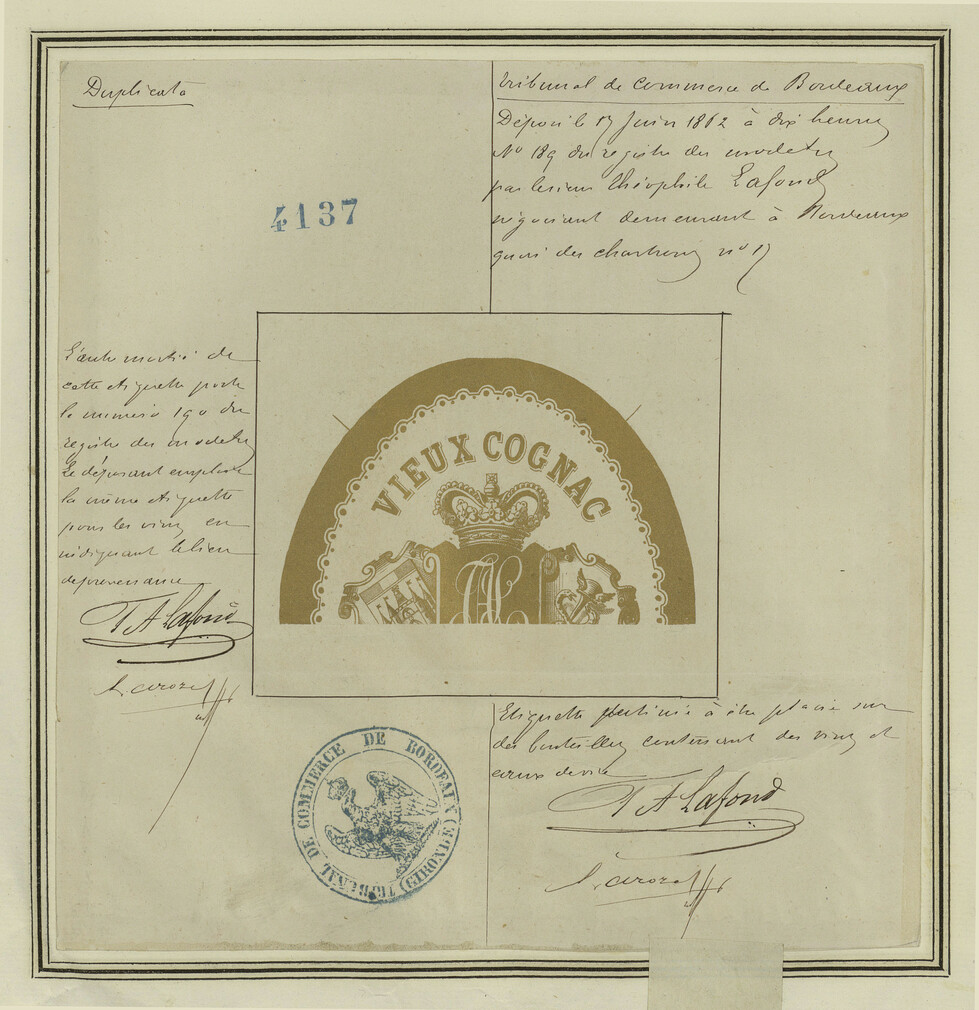 Duplicata
4137
Tribunal de Commerce de Bordeaux
Déposé le 17 Juin 1862 à dix heures
No 189 du registre des modeles
par le sieur Théophile Lafond
négociant demeurant à Bordeaux
quai des chartrons no
L'autre moitié de
cette étiquette porte
le numéro 190 du
registre des modeles
Le déposant emploie
la même étiquette
pour les vins en
indiquant le lieu
de provenance
T A Lafond
VIEUX COGNAC
Etiquette destinée à être placée sur
des bouteilles contenant des vins et
eaux de vie
T A Lafond
TRIBUNAL DE COMMERCE DE BORDEAUX (GIRONDE)